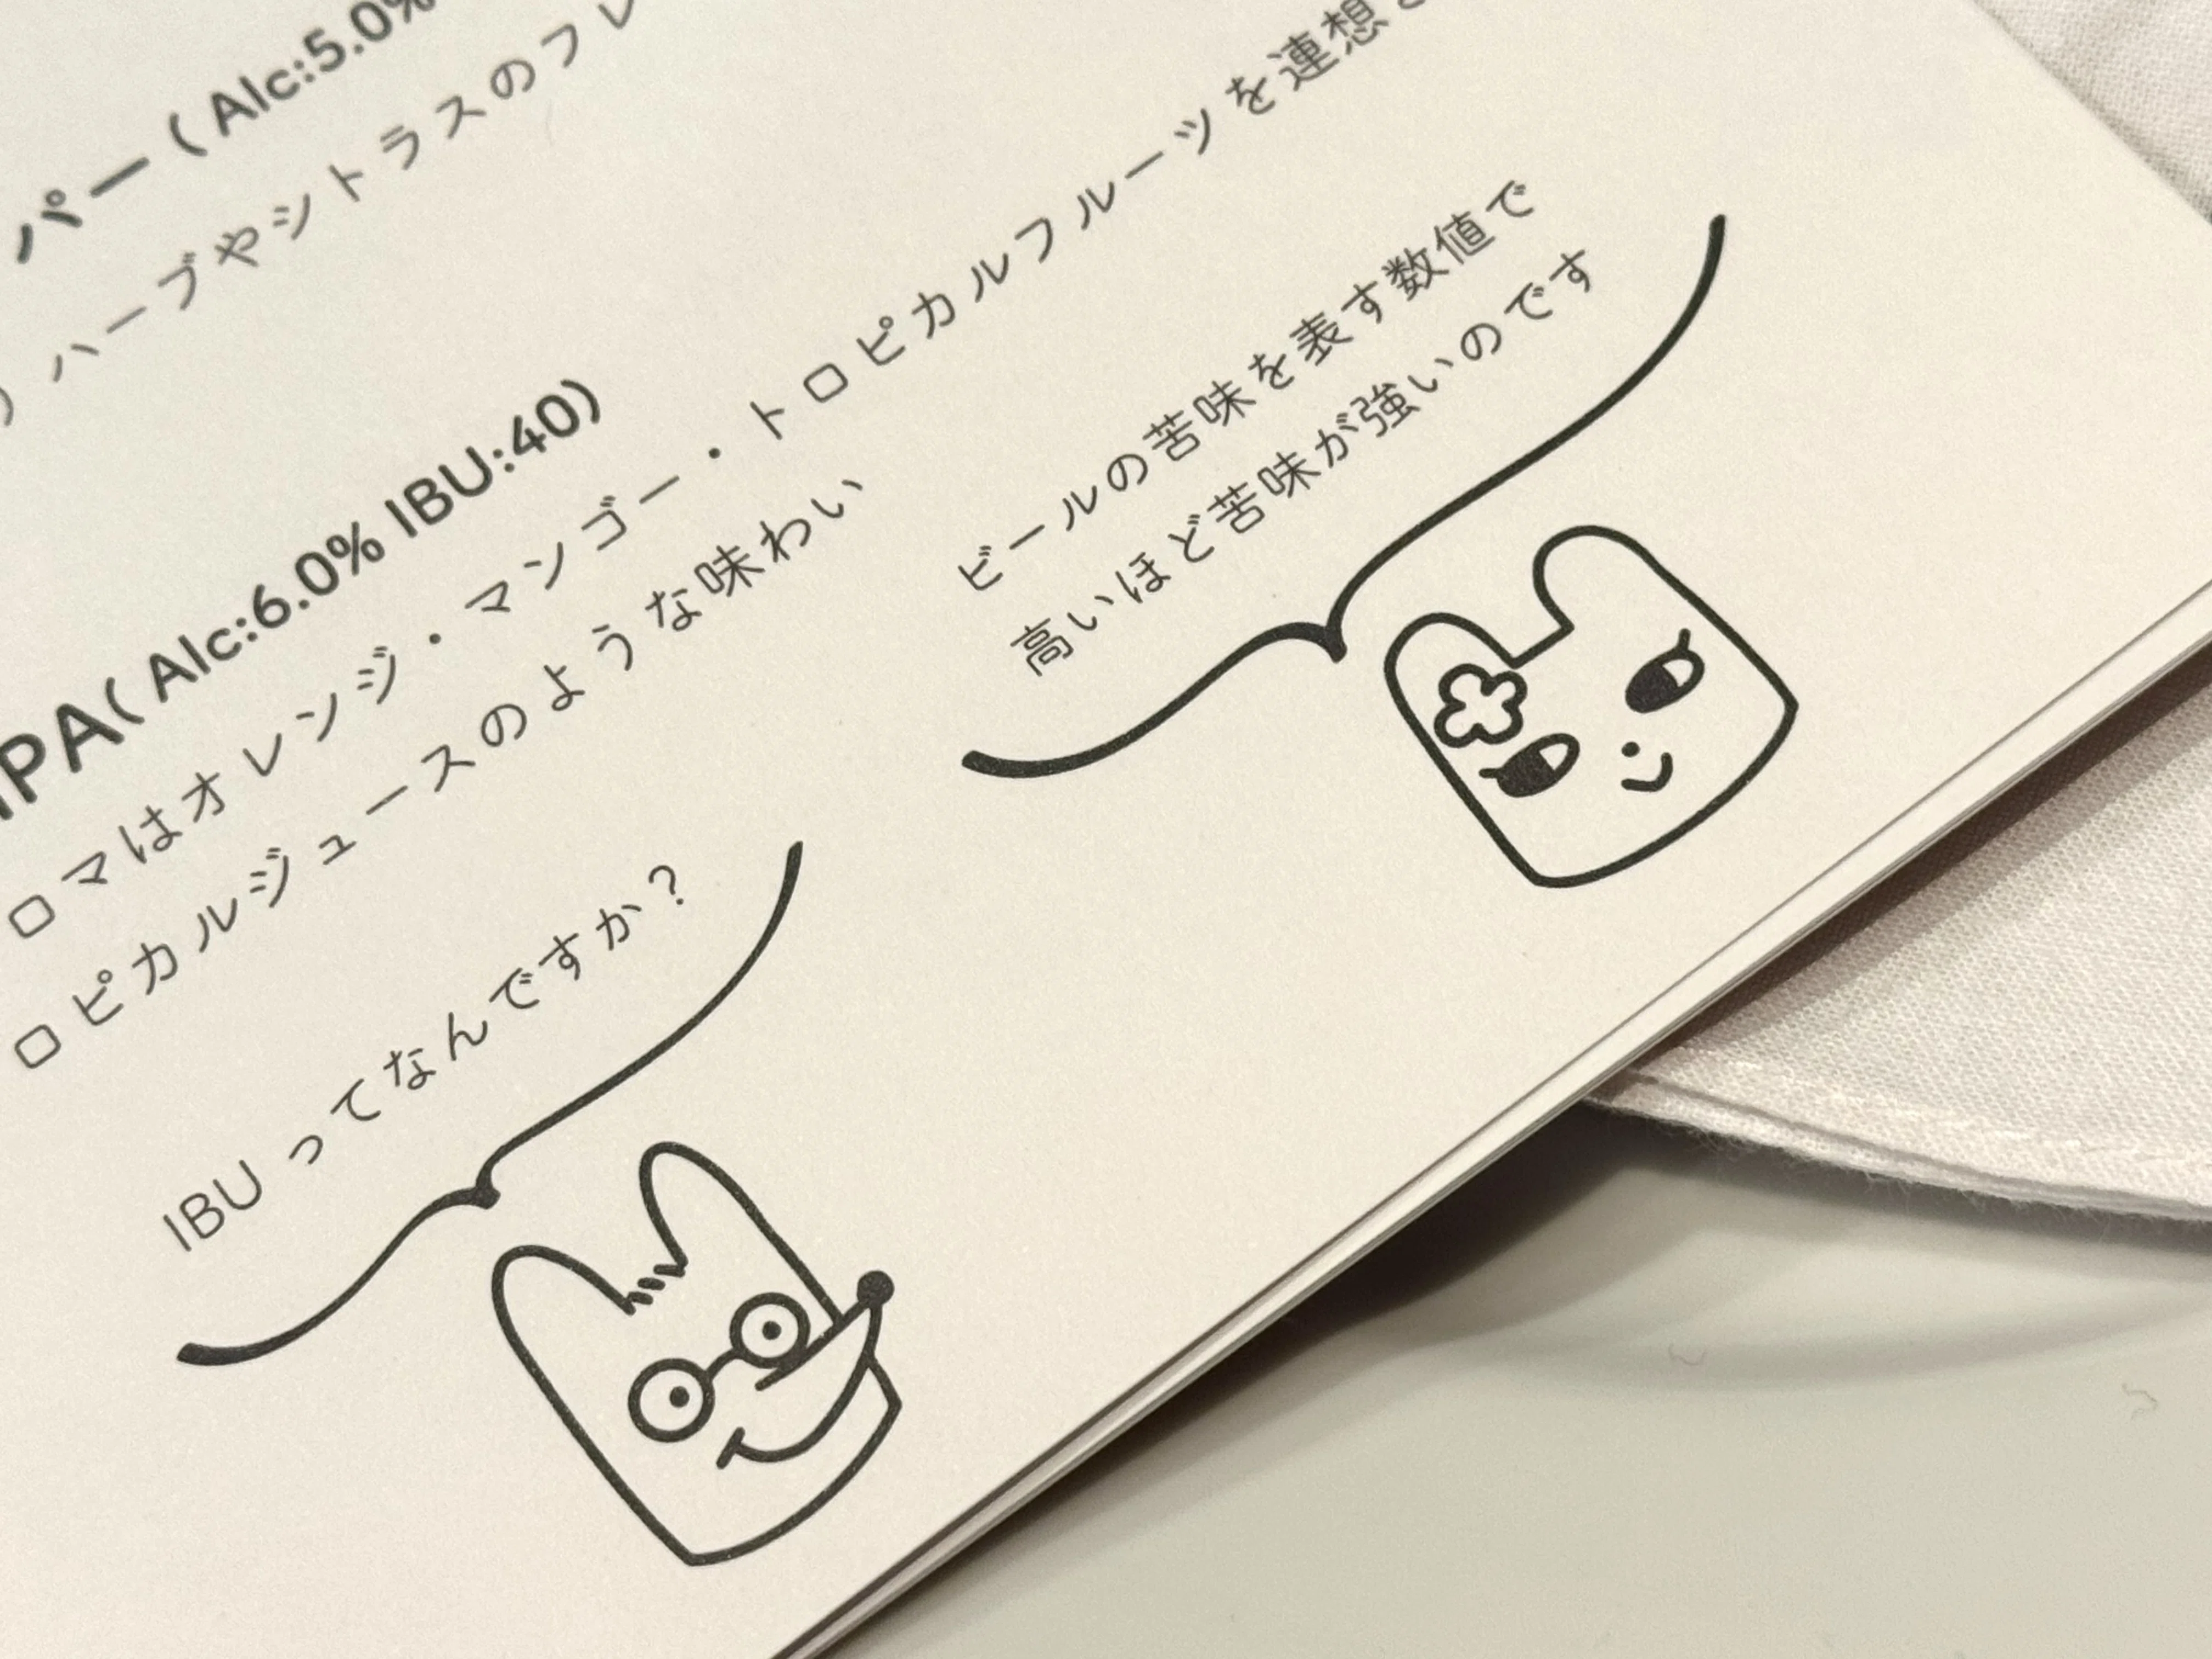 パー( Alc:5.0%
ハーブやシトラスのフレ
IPA( Alc:6.0% IBU:40)
ロマはオレンジ・マンゴー・トロピカルフルーツを連想
ロピカルジュースのような味わい
ビールの苦味を表す数値で
高いほど苦味が強いのです
IBU ってなんですか？